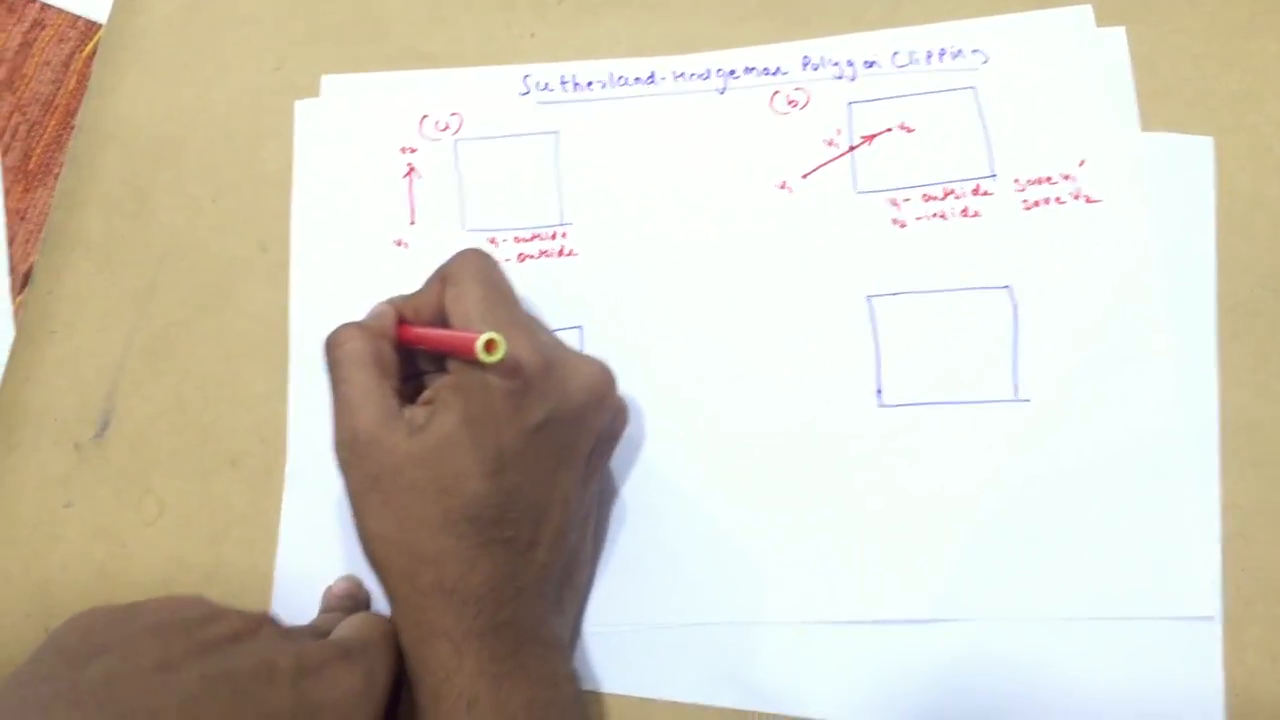 Sutherland-Hodgeman Polygon Clipping
(a)
v2
v1
v1 - outside
- outside
(b)
v1'
v2
v1
v1 - outside save v1'
v2 - inside save v2